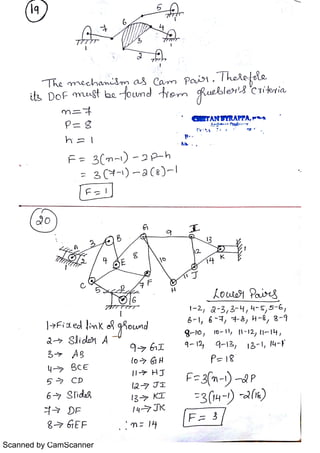 19
5
6
4
7
3
2
1
The mechanism as Cam Pair. Therefore
its DoF must be found from gruebler's criteria
n=7
P= 8
h = 1
F = 3(n-1) - 2P-h
= 3(7-1) - 2(8)-1
F = 1
20
G 9 I
13
B
3
A
2
4 E 8 10 12 14 K
J
C 5 D 7 F H 11
6
1
1→Fixed link or ground
2→ Slider A
3→ AB
4→ BCE
5→ CD
6→ Slider
7→ DF
8→ GEF
9→ GI
10→ GH
11→ HJ
12→ JI
13→ KI
14→ JK
∴ n= 14
Lower Pairs
1-2, 2-3, 3-4, 4-5, 5-6,
6-1, 6-7, 7-8, 4-8, 8-9
8-10, 10-11, 11-12, 11-14,
9-12, 9-13, 13-1, 14-1
P= 18
F= 3(n-1) -2P
=3(14-1) -2(18)
F= 3
Scanned by CamScanner